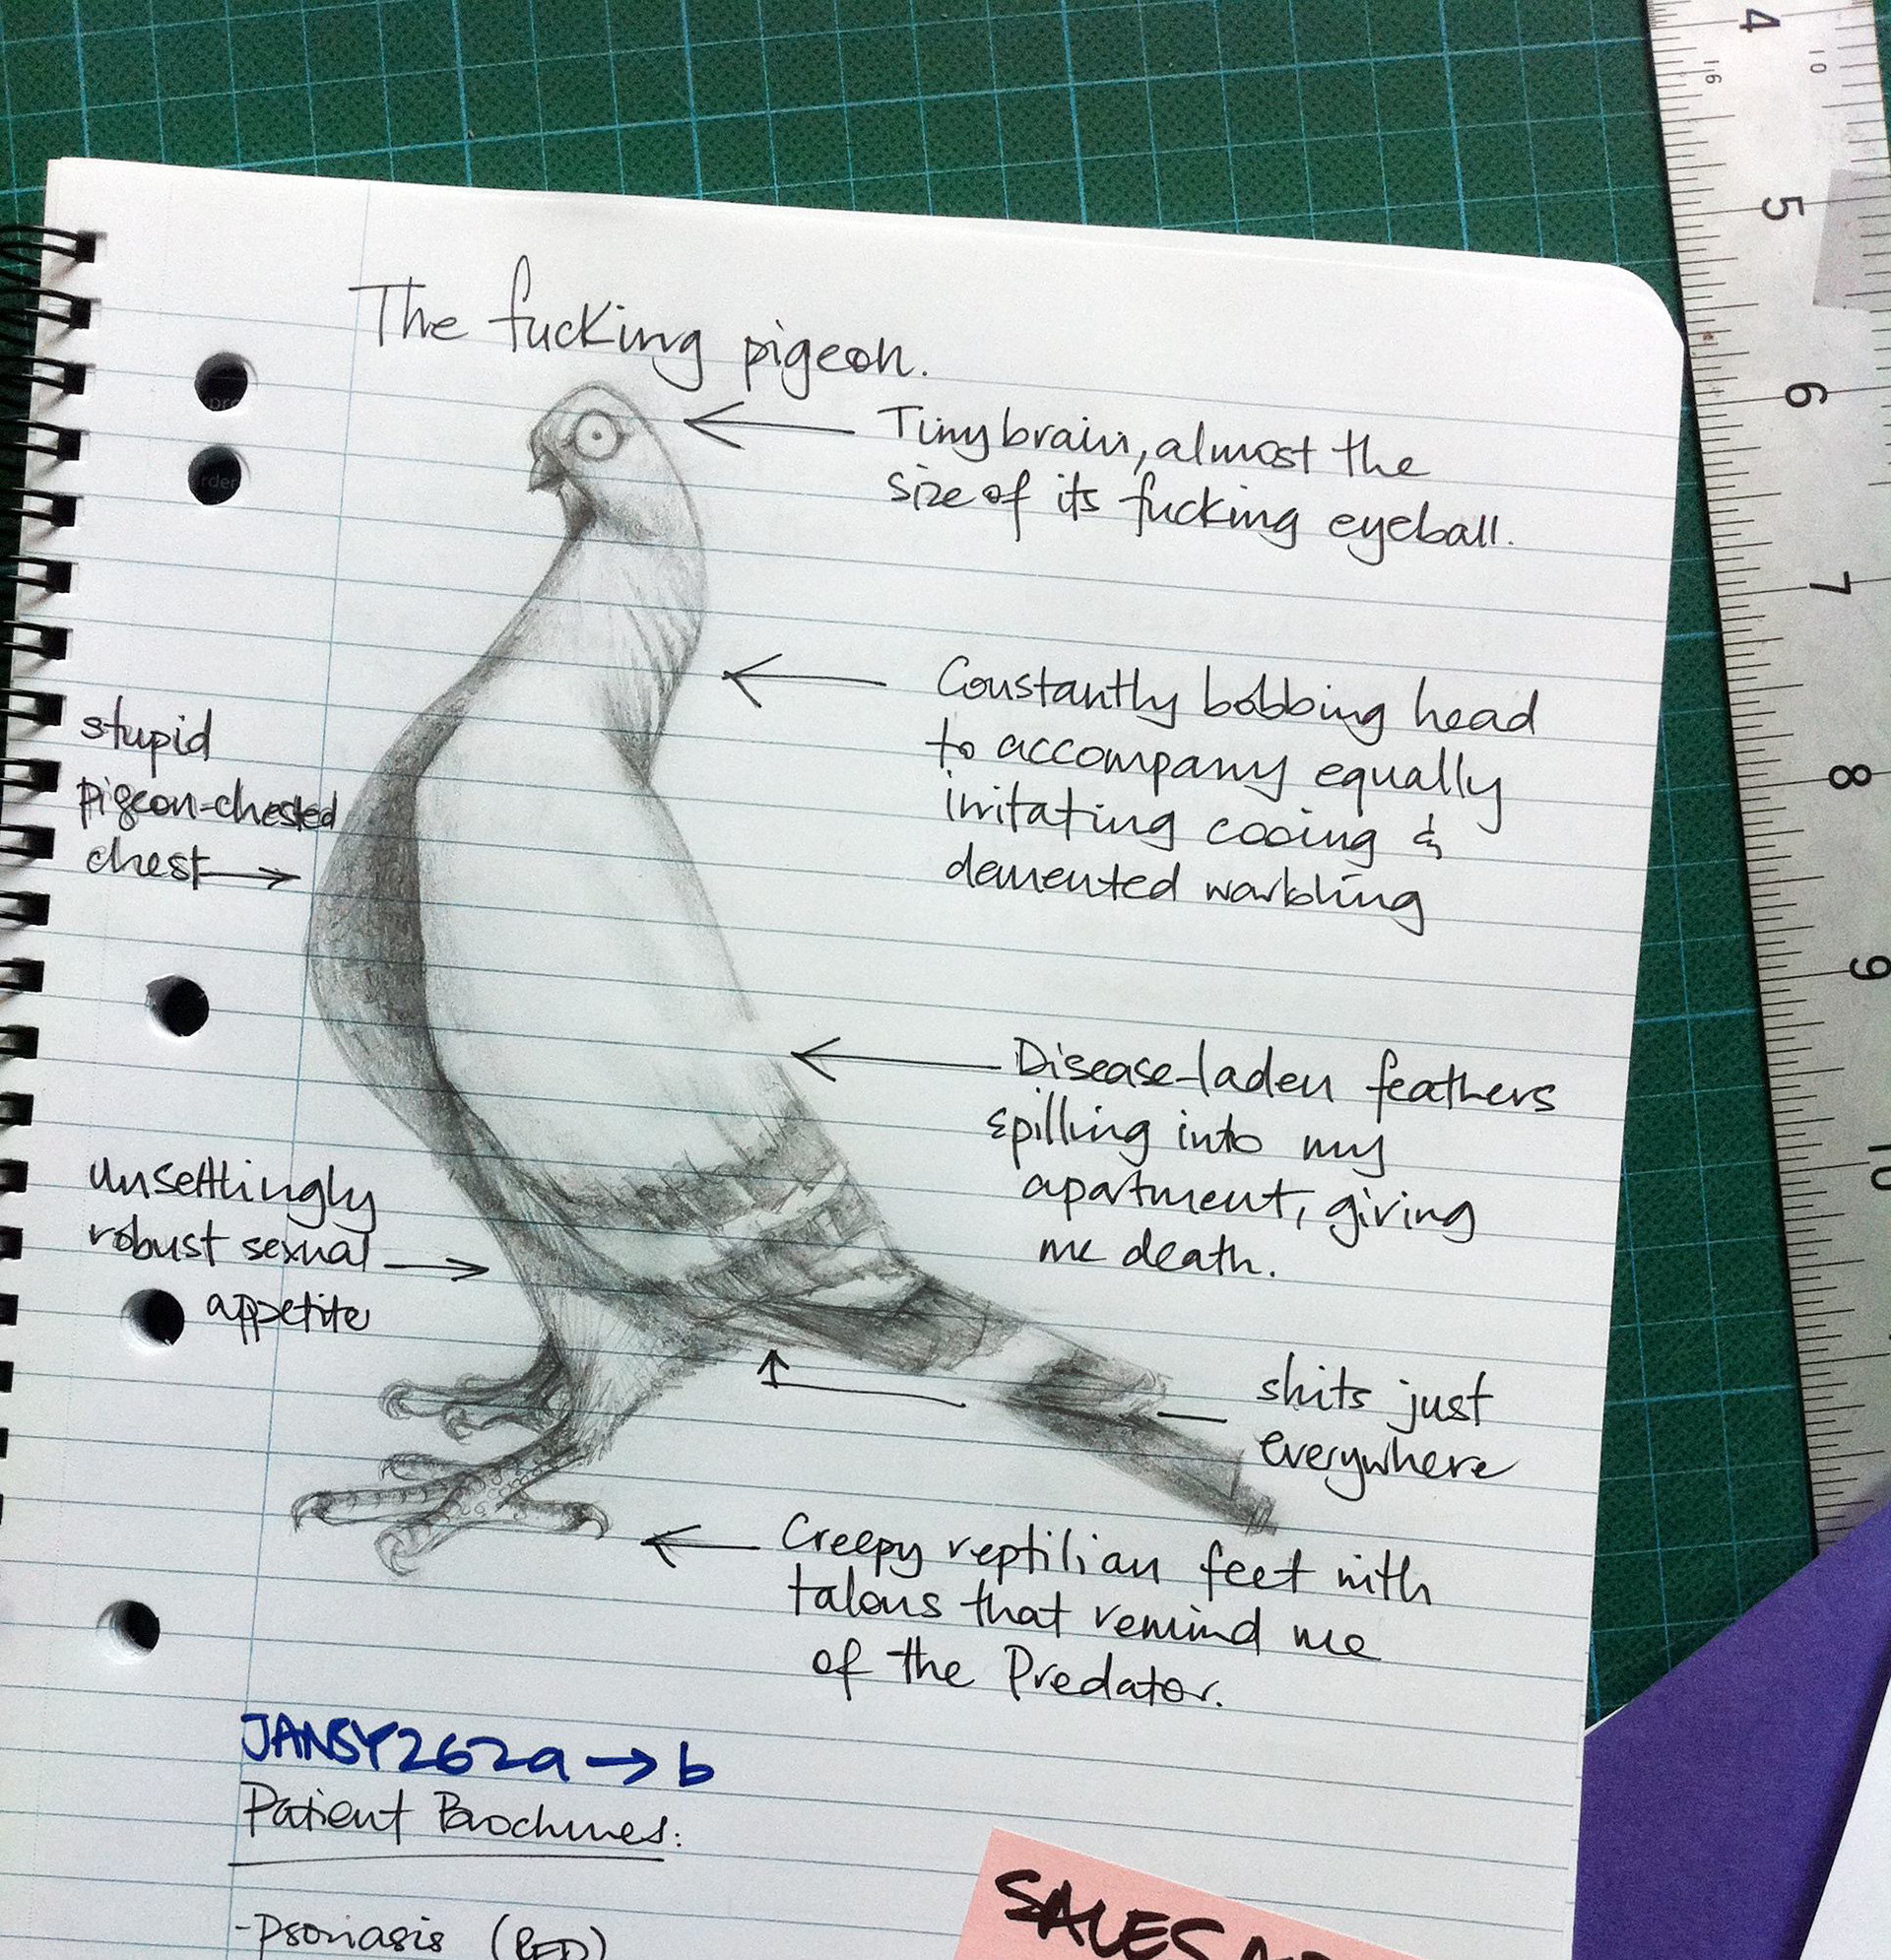 The fucking pigeon.
Tiny brain, almost the
size of its fucking eyeball.
Constantly bobbing head
to accompany equally
irritating cooing &
demented warbling
stupid
pigeon-chested
chest
Disease-laden feathers
spilling into my
apartment, giving
me death.
unsettlingly
robust sexual
appetite
shits just
everywhere
Creepy reptilian feet with
talons that remind me
of the Predator.
JANSY262a → b
Patient Brochures:
-psoriasis (RED)
SALES
4
5
6
7
8
9
10
16
10